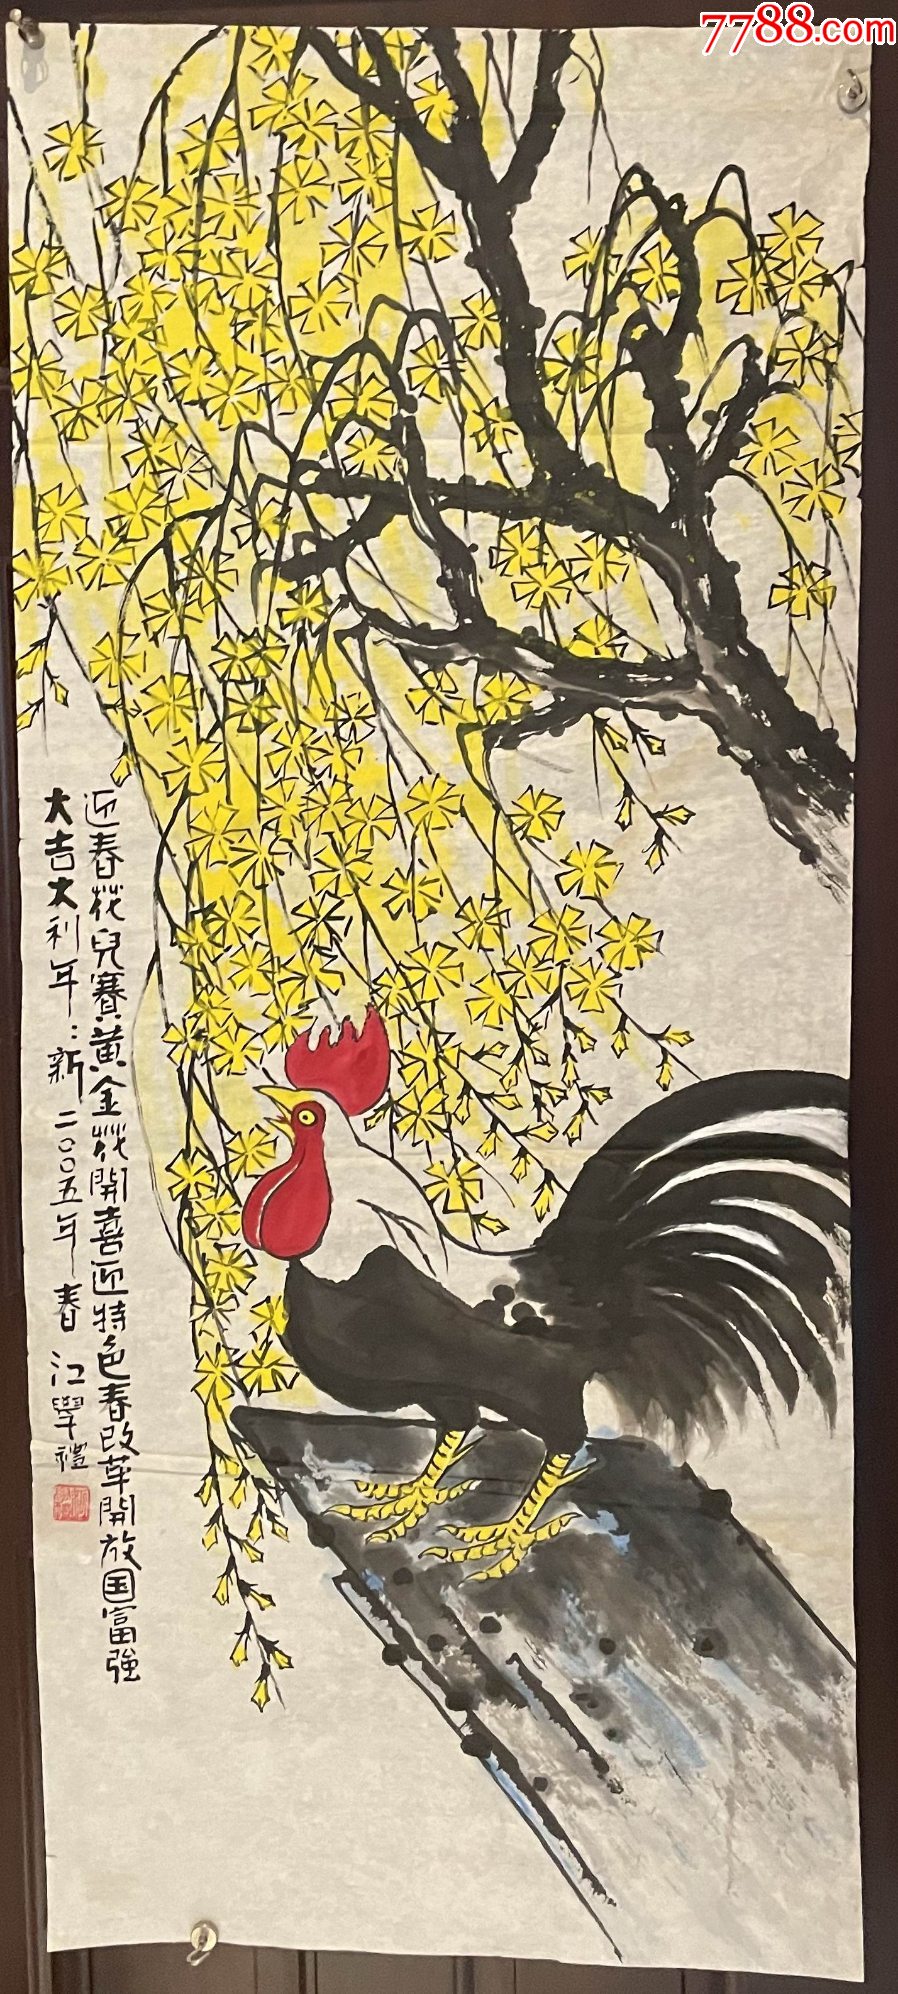 7788.com
迎春花兒賽黄金花開喜迎特色春改革開放国富強
大吉大利年:新二〇〇五年春 江學禮